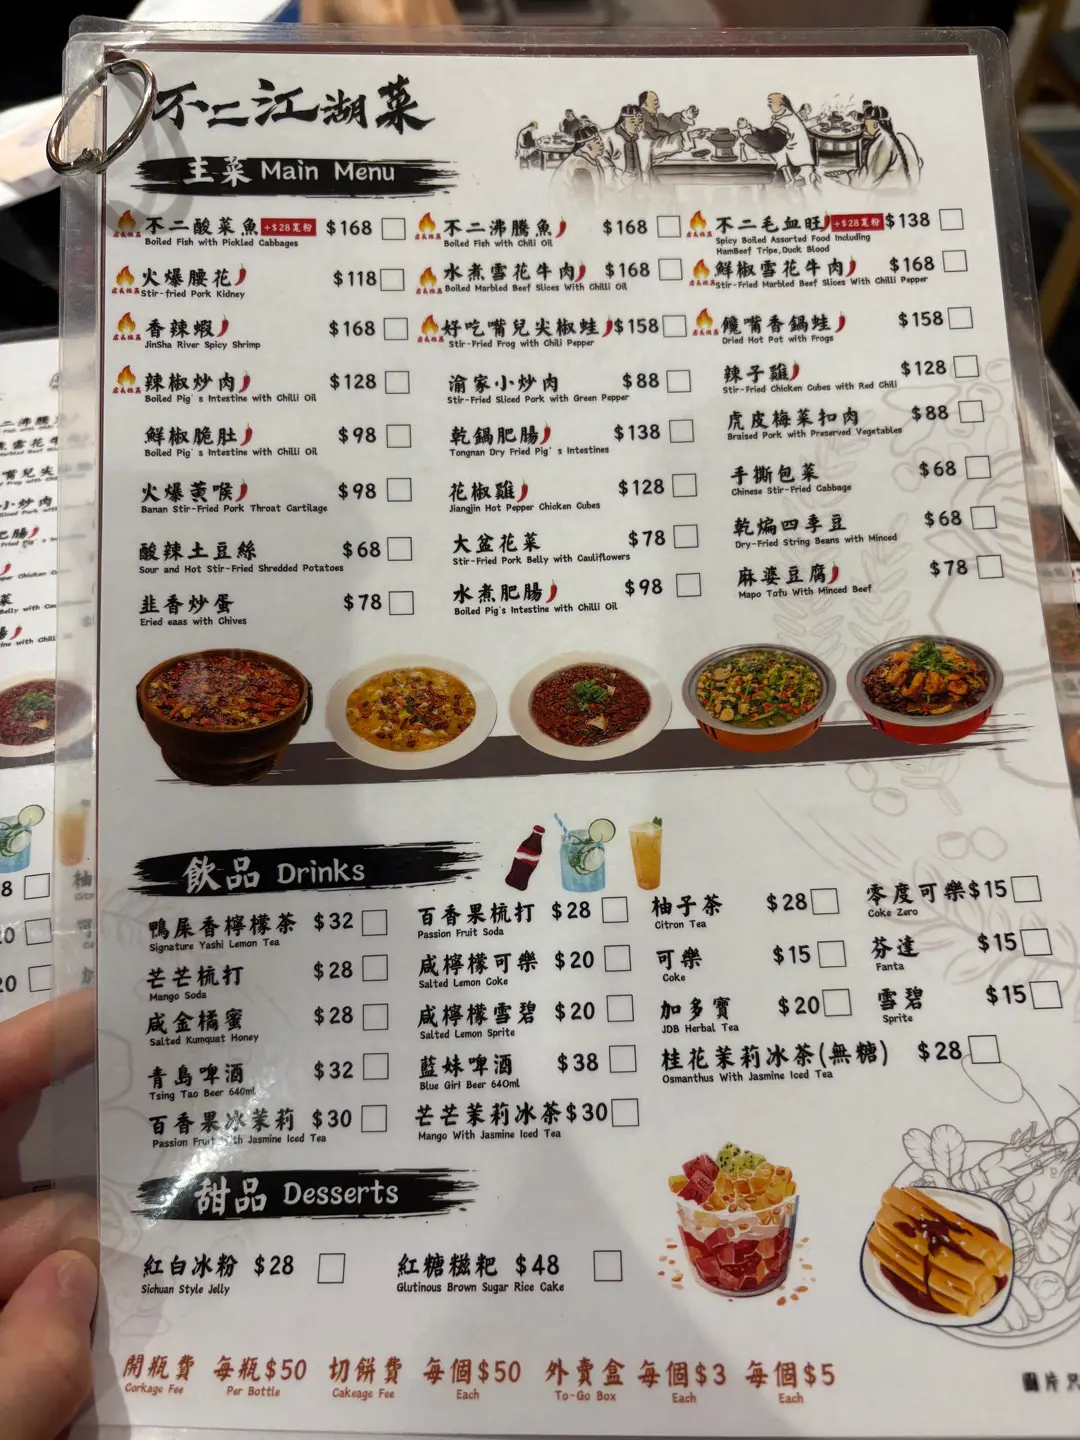 不二江湖菜
主菜 Main Menu
不二酸菜魚 +$28寬粉 $168
Boiled Fish with Pickled Cabbages
不二沸騰魚 $168
Boiled Fish with Chili Oil
不二毛血旺 +$28寬粉 $138
Spicy Boiled Assorted Food Including
HamBeef Tripe,Duck Blood
火爆腰花 $118
Stir-fried Pork Kidney
水煮雪花牛肉 $168
Boiled Marbled Beef Slices With Chilli Oil
鮮椒雪花牛肉 $168
Stir-Fried Marbled Beef Slices With Chilli Pepper
香辣蝦 $168
JinSha River Spicy Shrimp
好吃嘴兒尖椒蛙 $158
Stir-Fried Frog with Chili Pepper
饞嘴香鍋蛙 $158
Dried Hot Pot with Frogs
辣椒炒肉 $128
Boiled Pig's Intestine with Chilli Oil
渝家小炒肉 $88
Stir-Fried Sliced Pork with Green Pepper
辣子雞 $128
Stir-Fried Chicken Cubes with Red Chili
鮮椒脆肚 $98
Boiled Pig's Intestine with Chilli Oil
乾鍋肥腸 $138
Tongnan Dry Fried Pig's Intestines
虎皮梅菜扣肉 $88
Braised Pork with Preserved Vegetables
火爆黃喉 $98
Banan Stir-Fried Pork Throat Cartilage
花椒雞 $128
Jiangjin Hot Pepper Chicken Cubes
手撕包菜 $68
Chinese Stir-Fried Cabbage
酸辣土豆絲 $68
Sour and Hot Stir-Fried Shredded Potatoes
大盆花菜 $78
Stir-Fried Pork Belly with Cauliflowers
乾煸四季豆 $68
Dry-Fried String Beans with Minced
韭香炒蛋 $78
Eried eaas with Chives
水煮肥腸 $98
Boiled Pig's Intestine with Chilli Oil
麻婆豆腐 $78
Mapo Tofu With Minced Beef
飲品 Drinks
鴨屎香檸檬茶 $32
Signature Yashi Lemon Tea
百香果梳打 $28
Passion Fruit Soda
柚子茶 $28
Citron Tea
零度可樂 $15
Coke Zero
芒芒梳打 $28
Mango Soda
咸檸檬可樂 $20
Salted Lemon Coke
可樂 $15
Coke
芬達 $15
Fanta
咸金橘蜜 $28
Salted Kumquat Honey
咸檸檬雪碧 $20
Salted Lemon Sprite
加多寶 $20
JDB Herbal Tea
雪碧 $15
Sprite
青島啤酒 $32
Tsing Tao Beer 640ml
藍妹啤酒 $38
Blue Girl Beer 640ml
桂花茉莉冰茶(無糖) $28
Osmanthus With Jasmine Iced Tea
百香果冰茉莉 $30
Passion Fruit With Jasmine Iced Tea
芒芒茉莉冰茶 $30
Mango With Jasmine Iced Tea
甜品 Desserts
紅白冰粉 $28
Sichuan Style Jelly
紅糖糍粑 $48
Glutinous Brown Sugar Rice Cake
開瓶費 每瓶$50 切餅費 每個$50 外賣盒 每個$3 每個$5
Corkage Fee Per Bottle Cakeage Fee Each To-Go Box Each Each
圖片只